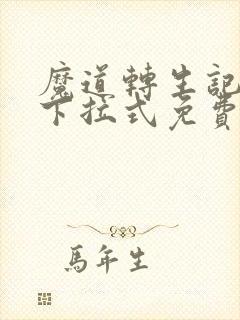 魔道轉生記
下拉式免費
馬年生